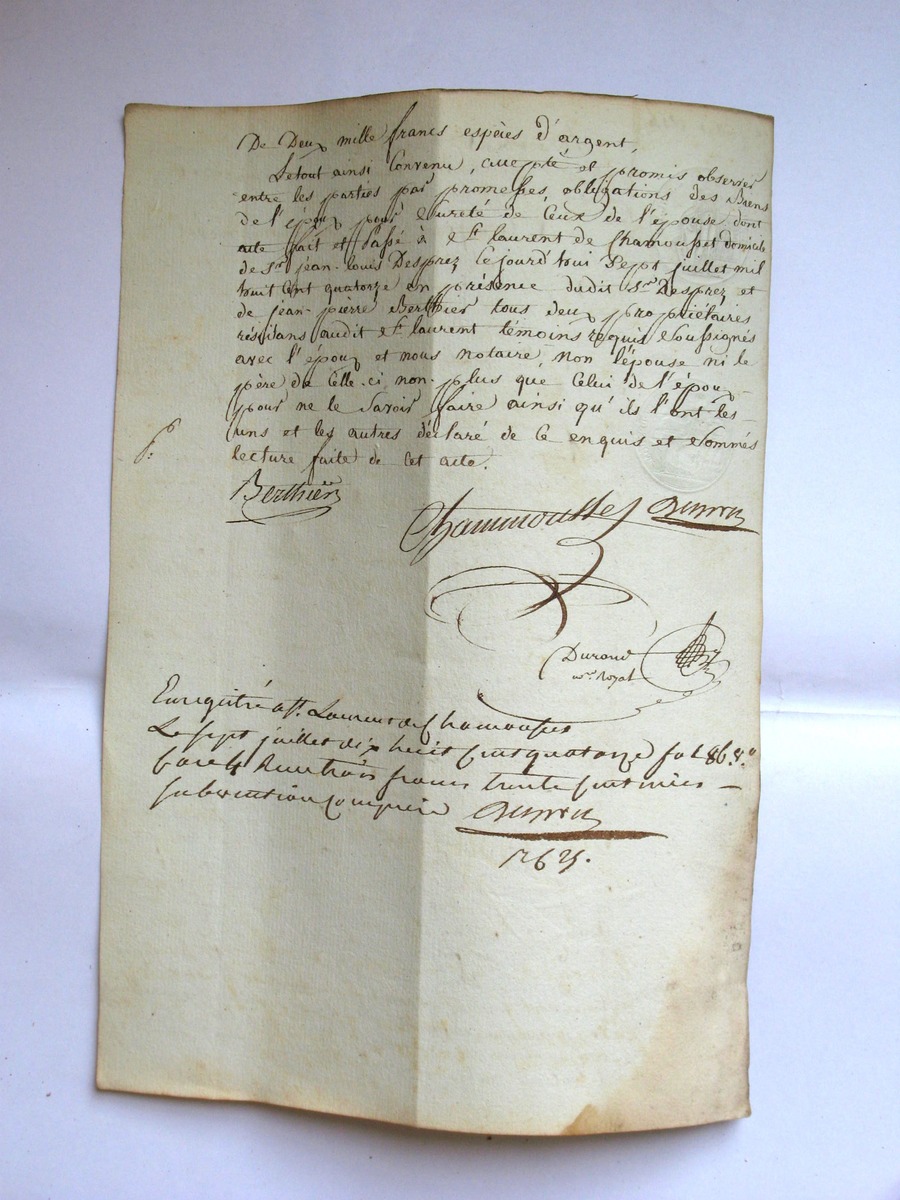 De Deux mille francs espèces d'argent,
Le tout ainsi Convenu, accepté et promis observer
entre les parties par promesses, obligations des Biens
de l'époux pour sureté de Ceux de l'épouse dont
acte fait et Passé à St laurent de Chamousset domicile
de Sr jean-louis Desprez, Ce jourd'hui Sept juillet mil
huit Cent quatorze en présence dudit Sr Desprez et
de jean-pierre Berthier tous deux propriétaires
résidans audit St laurent témoins requis Soussignés
avec l'époux et nous notaire, non l'épouse ni le
père de Celle-ci, non-plus que Celui de l'époux
pour ne le Savoir faire ainsi qu'ils l'ont les
uns et les autres déclaré de Ce enquis et Sommés
lecture faite de cet acte.
Berthier
Chammousset
Durand
nre Royal
Enregistré à St. Laurent de Chamousset
Le sept juillet dix huit Cent quatorze fo 186 vo
trois francs trente Centimes
Subvention Comprise